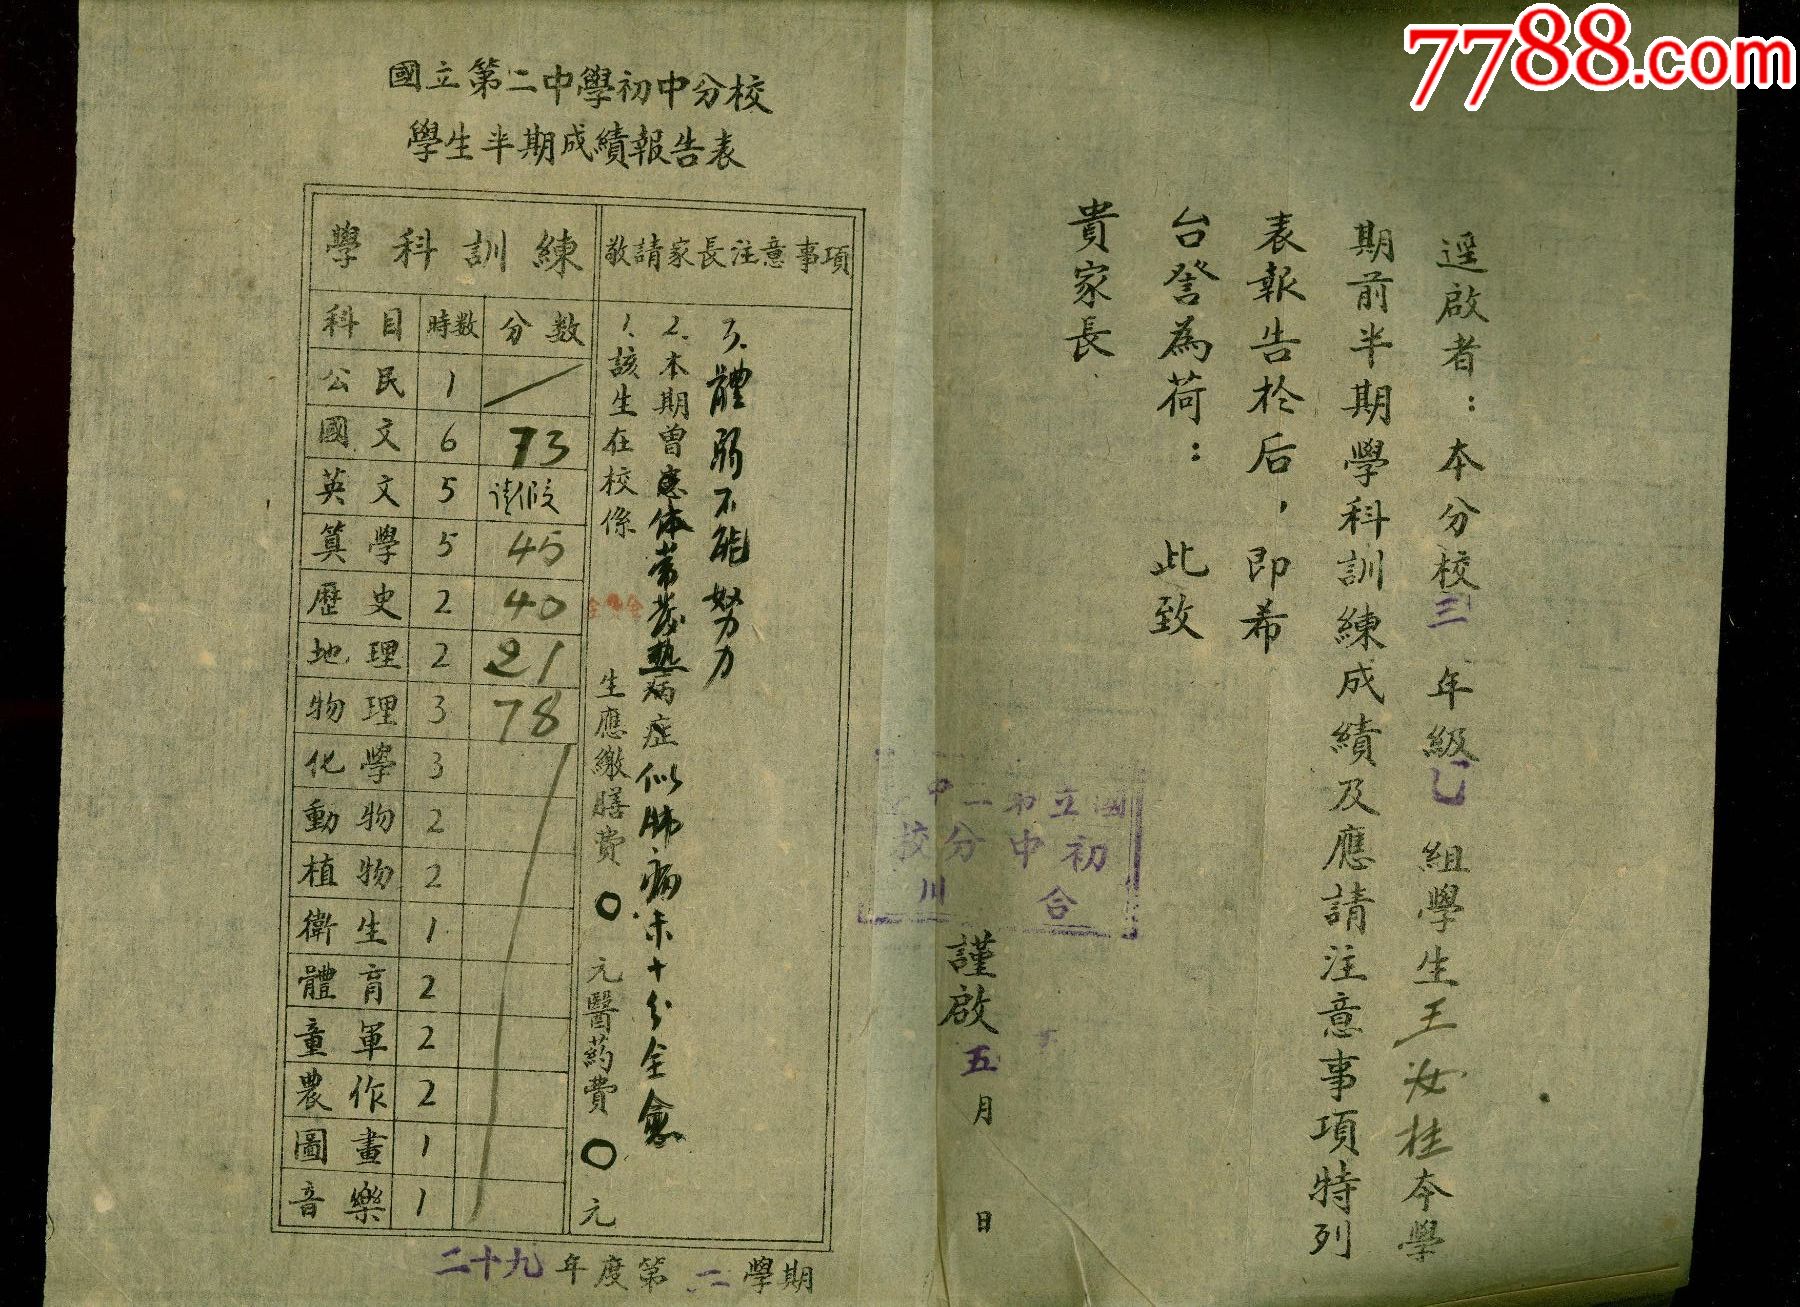 7788.com
國立第二中學初中分校
學生半期成績報告表
學科訓練
科目 時数 分数
公民 1
國文 6 73
英文 5 请假
算學 5 45
歷史 2 40
地理 2 21
物理 3 78
化學 3
動物 2
植物 2
衛生 1
體育 2
童軍 2
農作 2
圖畫 1
音樂 1
敬請家長注意事項
1.該生在校係 生應繳膳費〇元醫药費〇元
2.本期曾患体常發熱病症似肺病未十分全愈
3.體弱不能努力
二十九年度第二學期
逕啟者:本分校三年級乙組學生王汝桂本學
期前半期學科訓練成績及應請注意事項特列
表報告於后,即希
台詧為荷: 此致
貴家長
謹啟 五月 日
國立第二中學
初中分校
合川